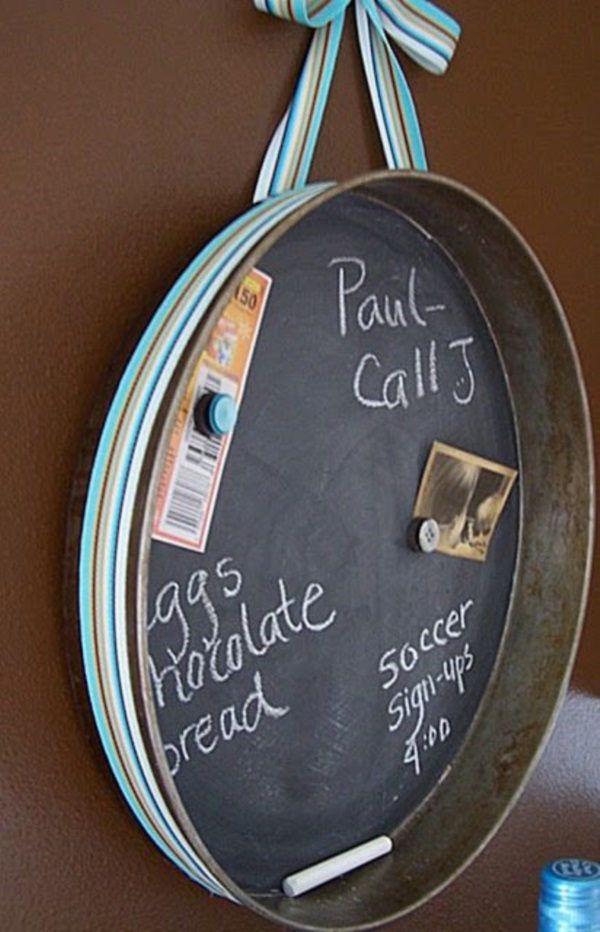 150
Paul-
Call J
eggs
hocolate
bread
Soccer
Sign-ups
4:00